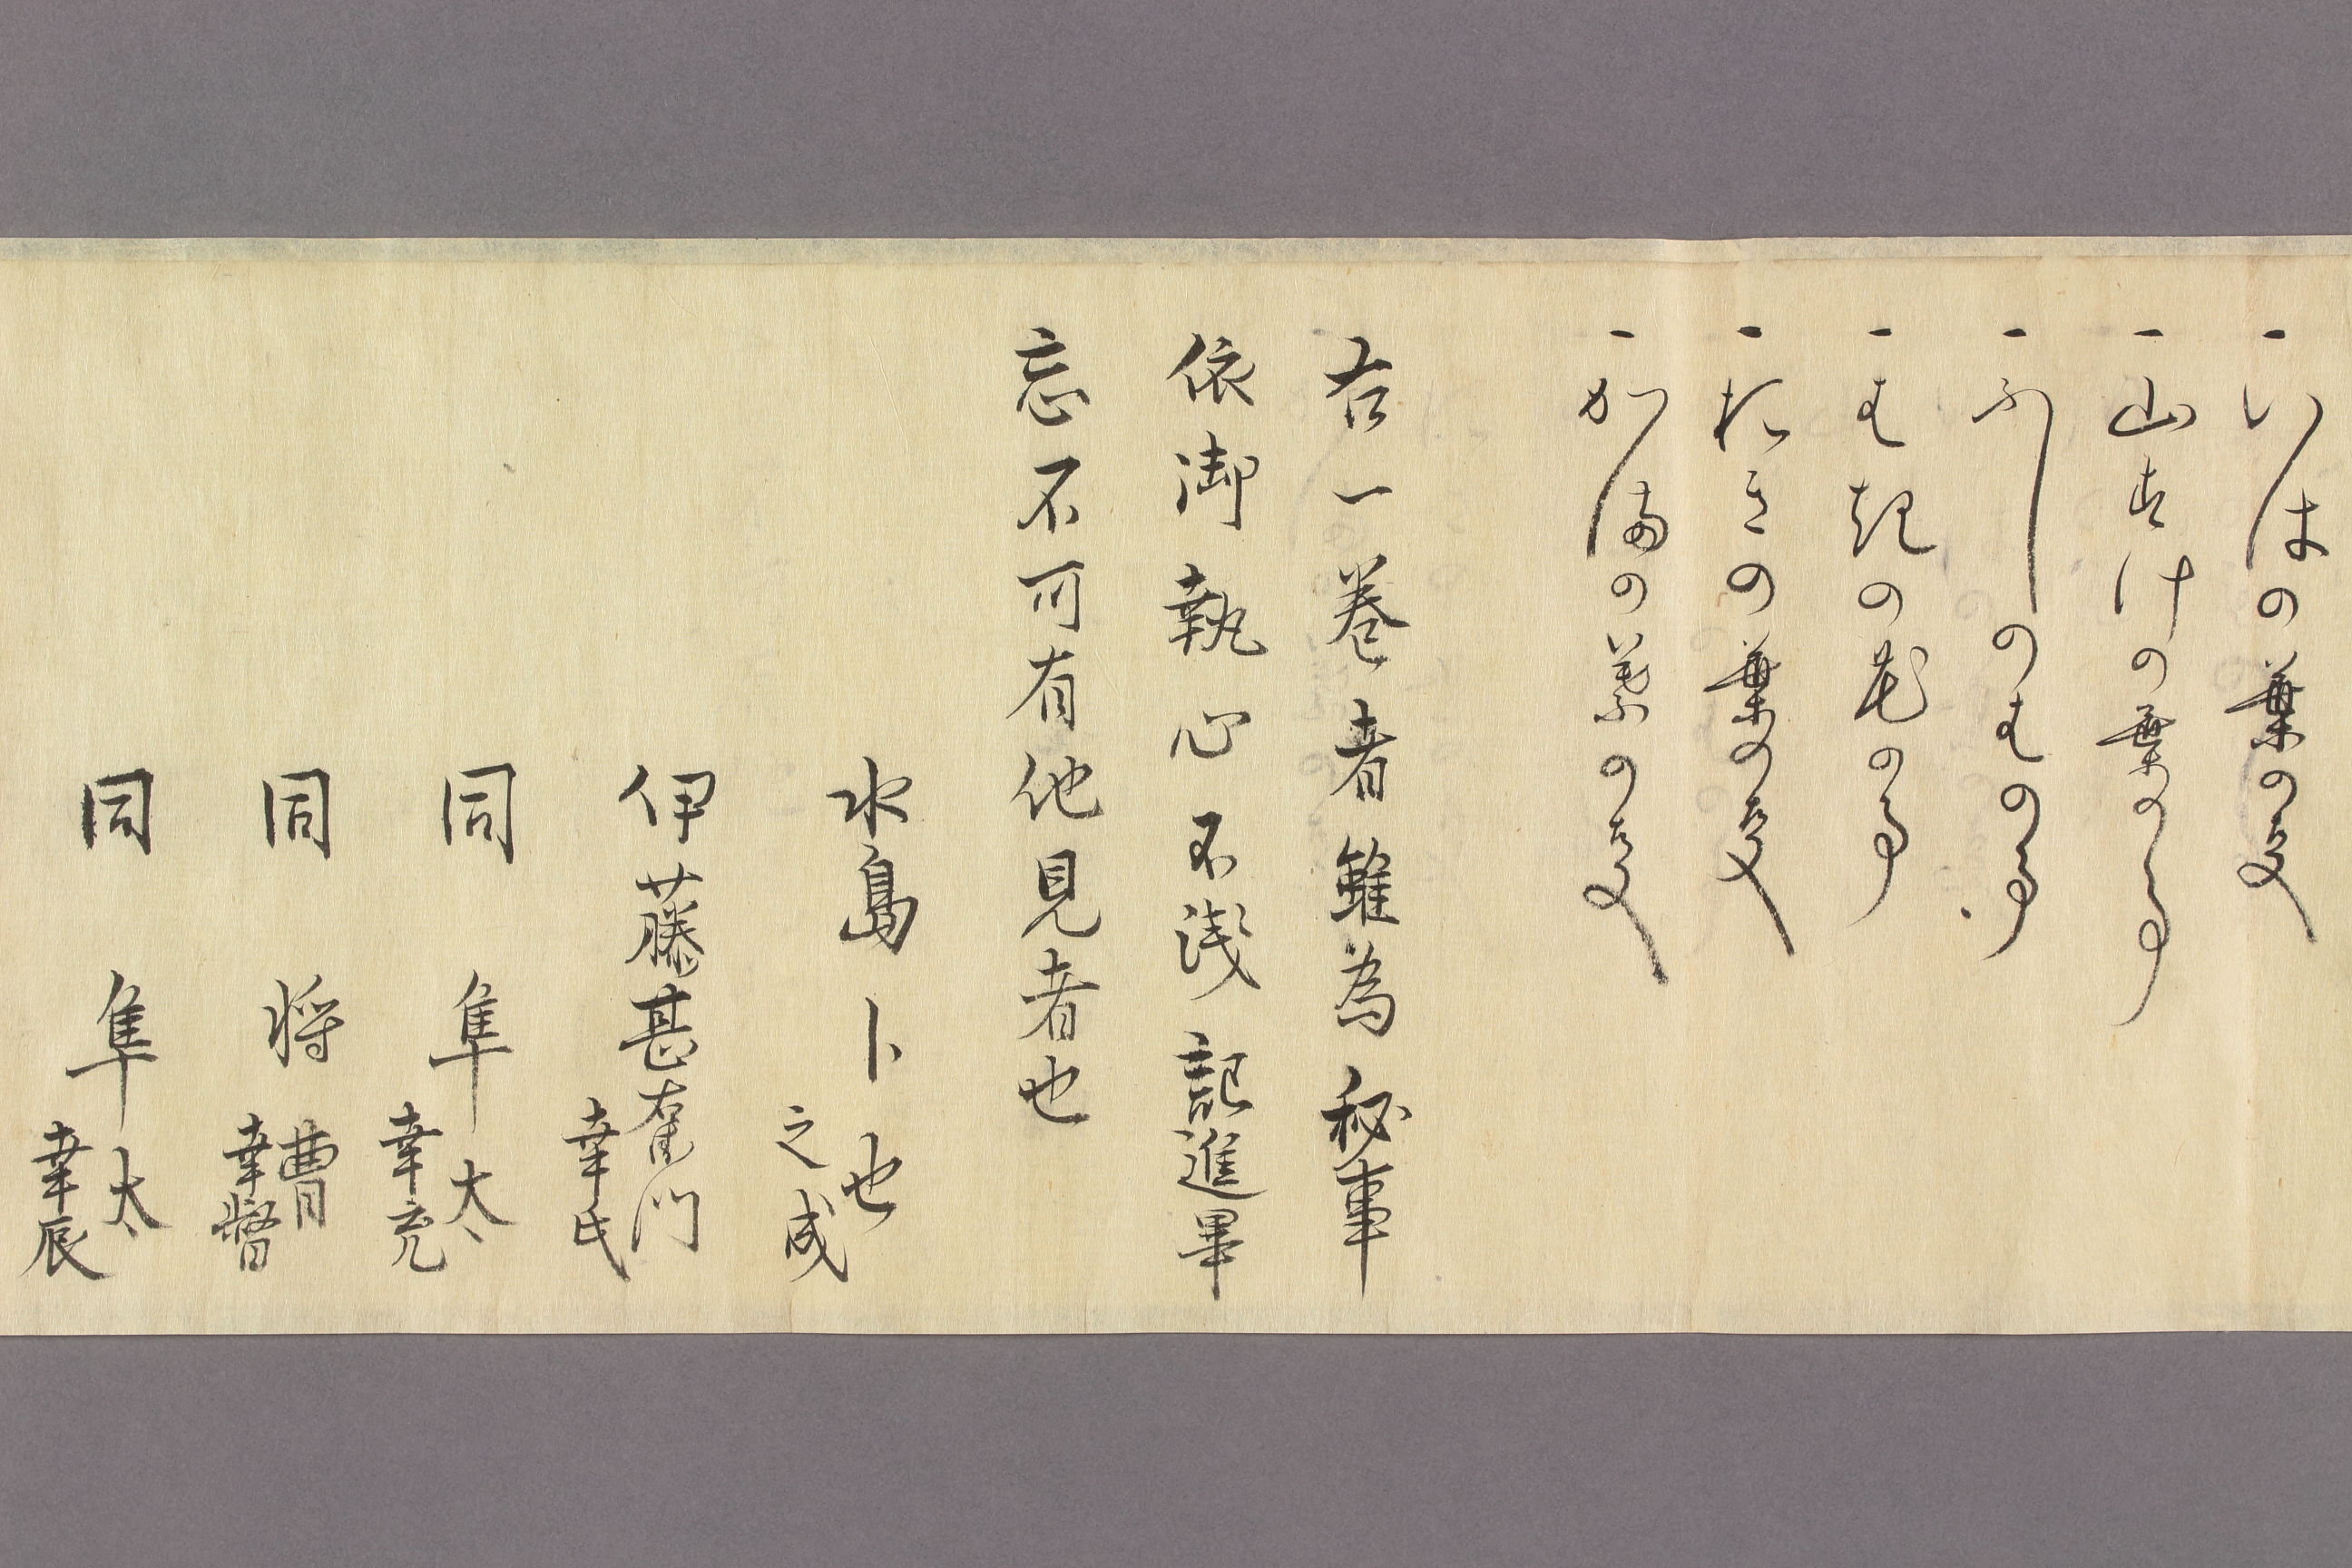 一いはの葉の事
一山すけの葉の事
一ふしのはの事
一はきの花の事
一おきの葉の事
一かまの葉の事
右一巻者雖為秘事
依御執心不浅記進畢
忘不可有他見者也
水島卜也
之成
伊藤甚右衛門
幸氏
同 隼太
幸充
同 将曹
幸督
同 隼太
幸辰